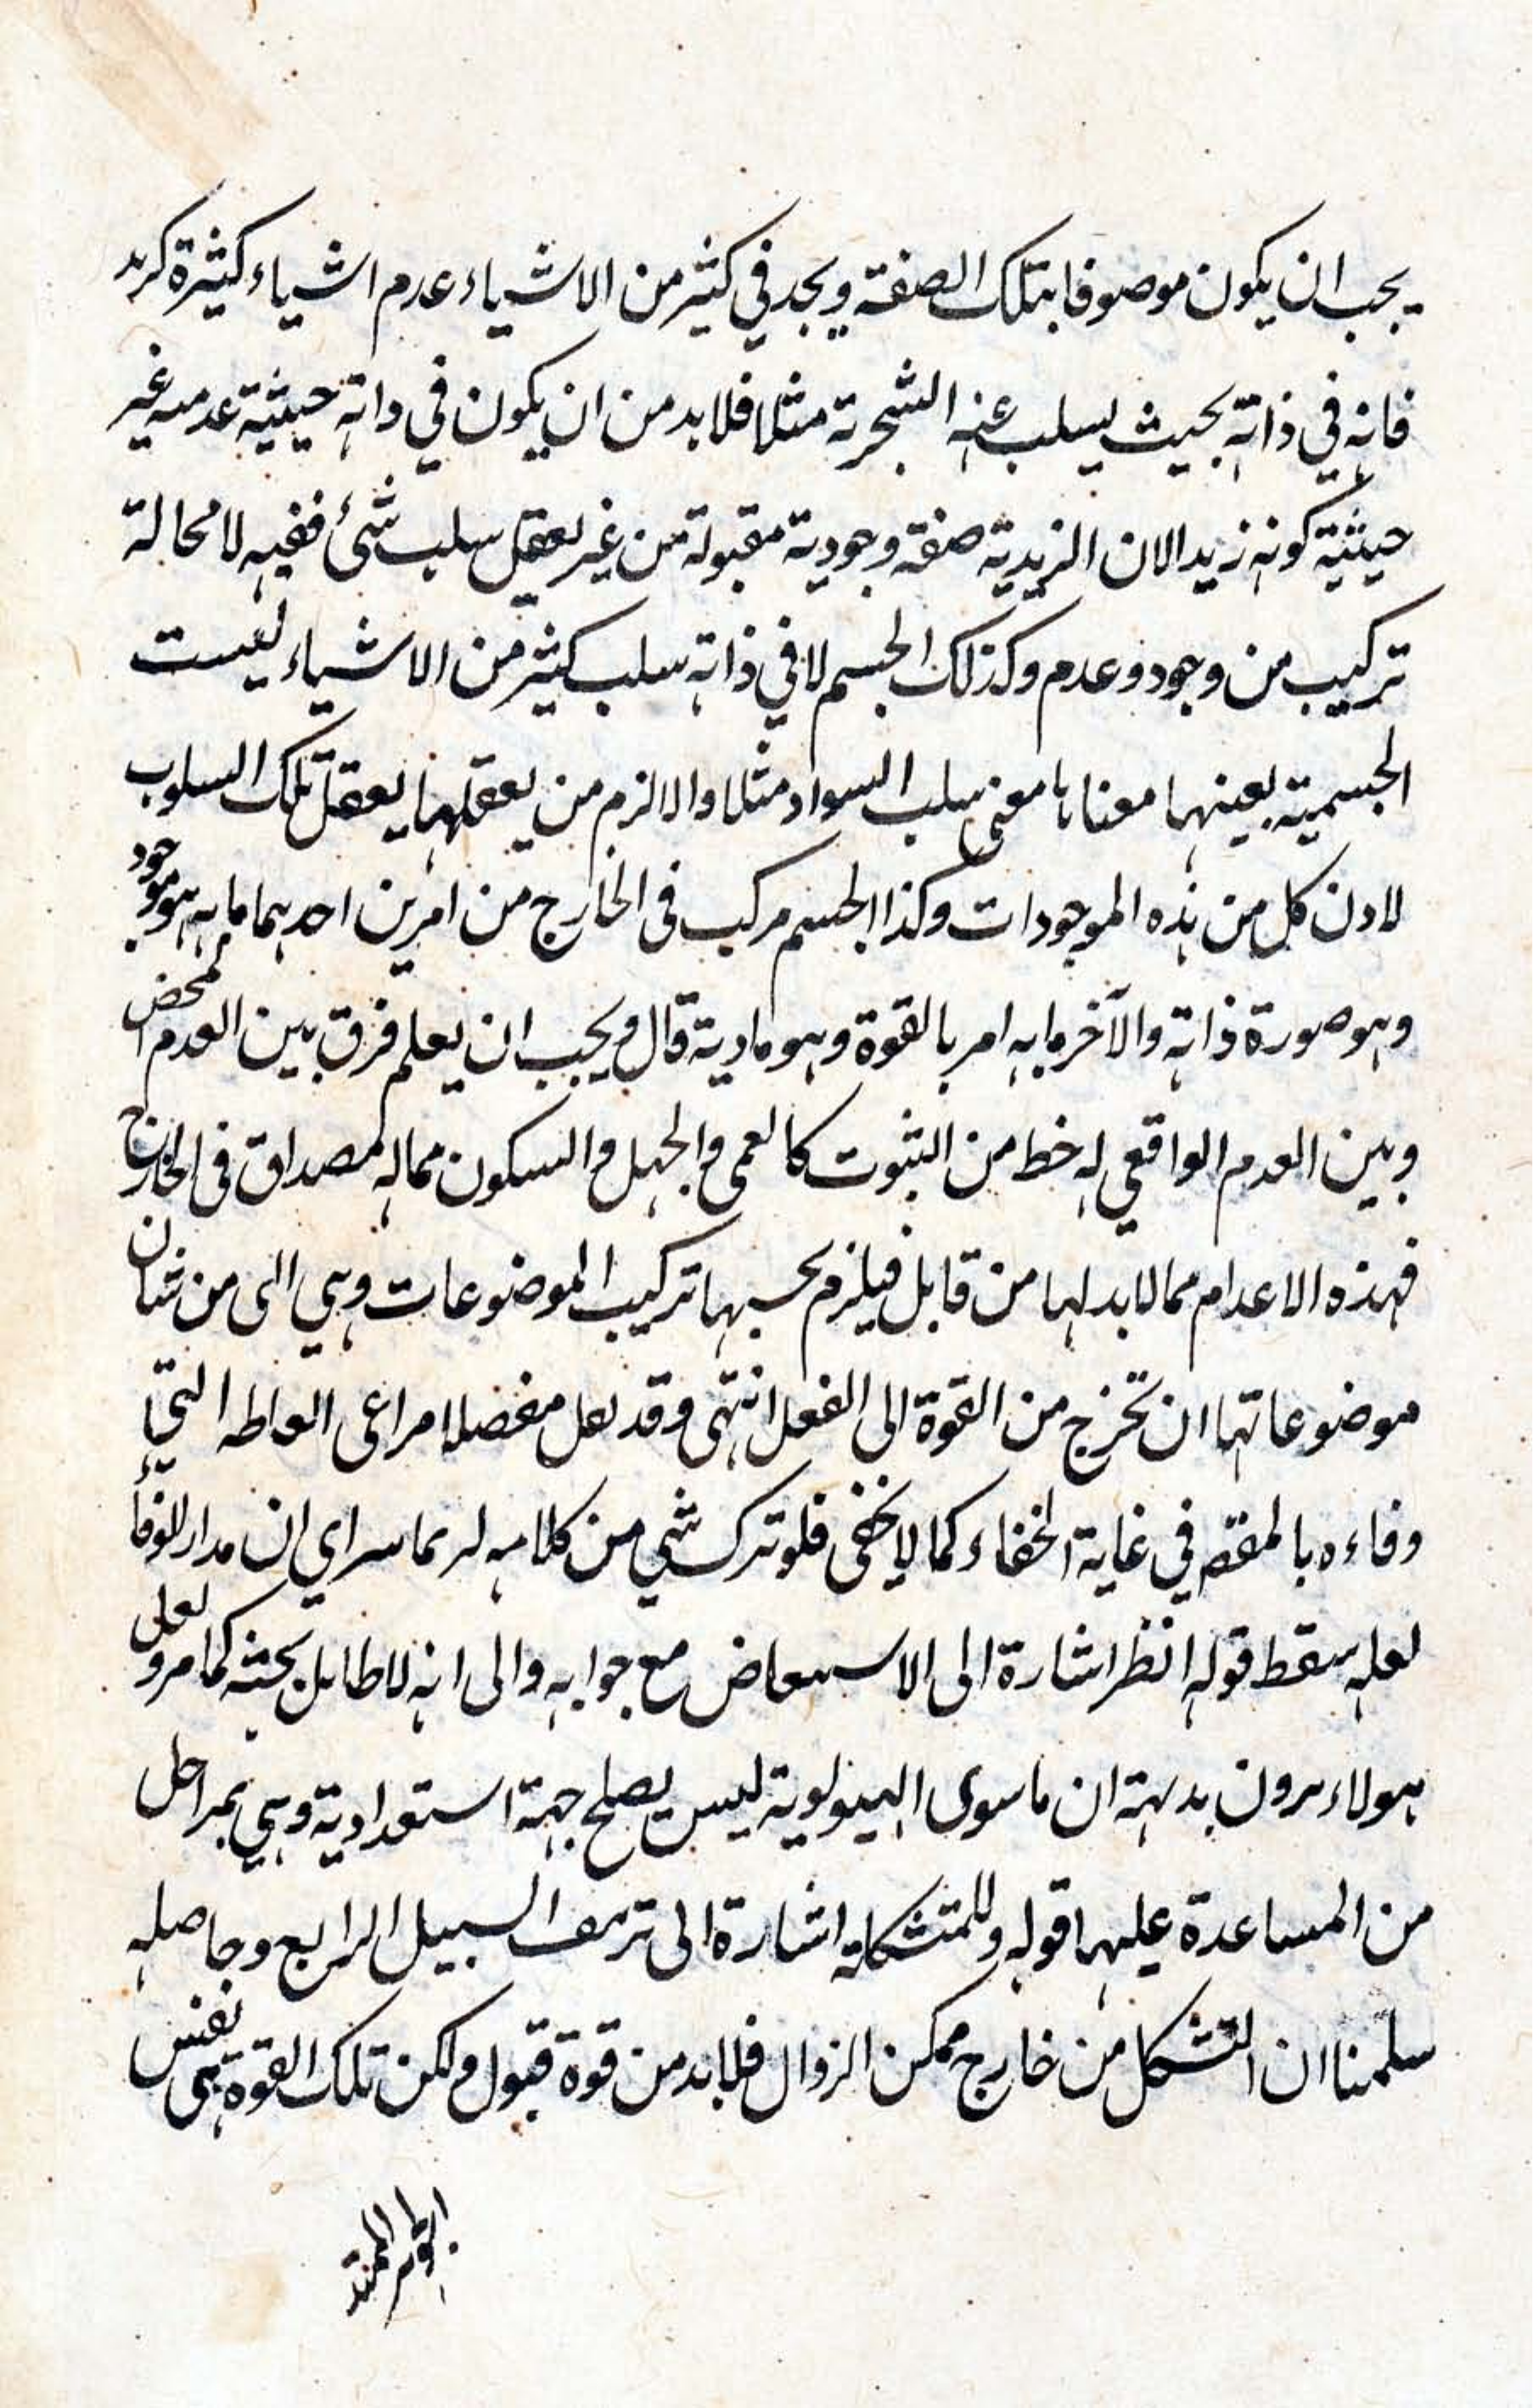 يجب ان يكون موصوفا بتلك الصفة ويجد في كثير من الاشياء عدم اشياء كثيرة كزيد
فانه في ذاته بحيث يسلب عنه الشجرية مثلا فلا بد من ان يكون في ذاته حيثية عدمية غير
حيثية كونه زيدا لان الزيدية صفة وجودية مقبولة من غير تعقل سلب شئ ففيه لا محالة
تركيب من وجود وعدم وكذلك الجسم لا في ذاته سلب كثير من الاشياء ليست
الجسمية بعينها معناها معنى سلب السواد مثلا والا لزم من يعقلها يعقل تلك السلوب
لا دن كل من هذه الموجودات وكذا الجسم مركب فى الخارج من امرين احدهما ما به هو موجود
وهو صورة ذاته والآخر ما به امر بالقوة وهو مادية قال ويجب ان يعلم فرق بين العدم المحض
وبين العدم الواقعي له خط من الثبوت كالعمى والجهل والسكون مما له مصداق فى الخارج
فهذه الاعدام مما لا بد لها من قابل فيلزم بحسبها تركيب الموضوعات وهي التى من شان
موضوعاتها ان تخرج من القوة الى الفعل انتهى وقد نقل مفصلا مراعى الفاظه التي
وفاءه بالمقصد في غاية الخفاء كما لا يخفى فلو ترك شي من كلامه لربما يتراي ان مدار الوفاء
لعله سقط قوله انظر اشارة الى الاستعاض مع جوابه والى انه لا طايل بحثه كما مر ولعل
هولاء يرون بديهة ان ما سوى الهيولوية ليس يصلح جهة استعدادية وهي بمراحل
من المساعدة عليها قوله وللمتشكك اشارة الى تزييف السبيل الرابع وحاصله
سلمنا ان التشكل من خارج ممكن الزوال فلا بد من قوة قبول ولكن تلك القوة هى نفس